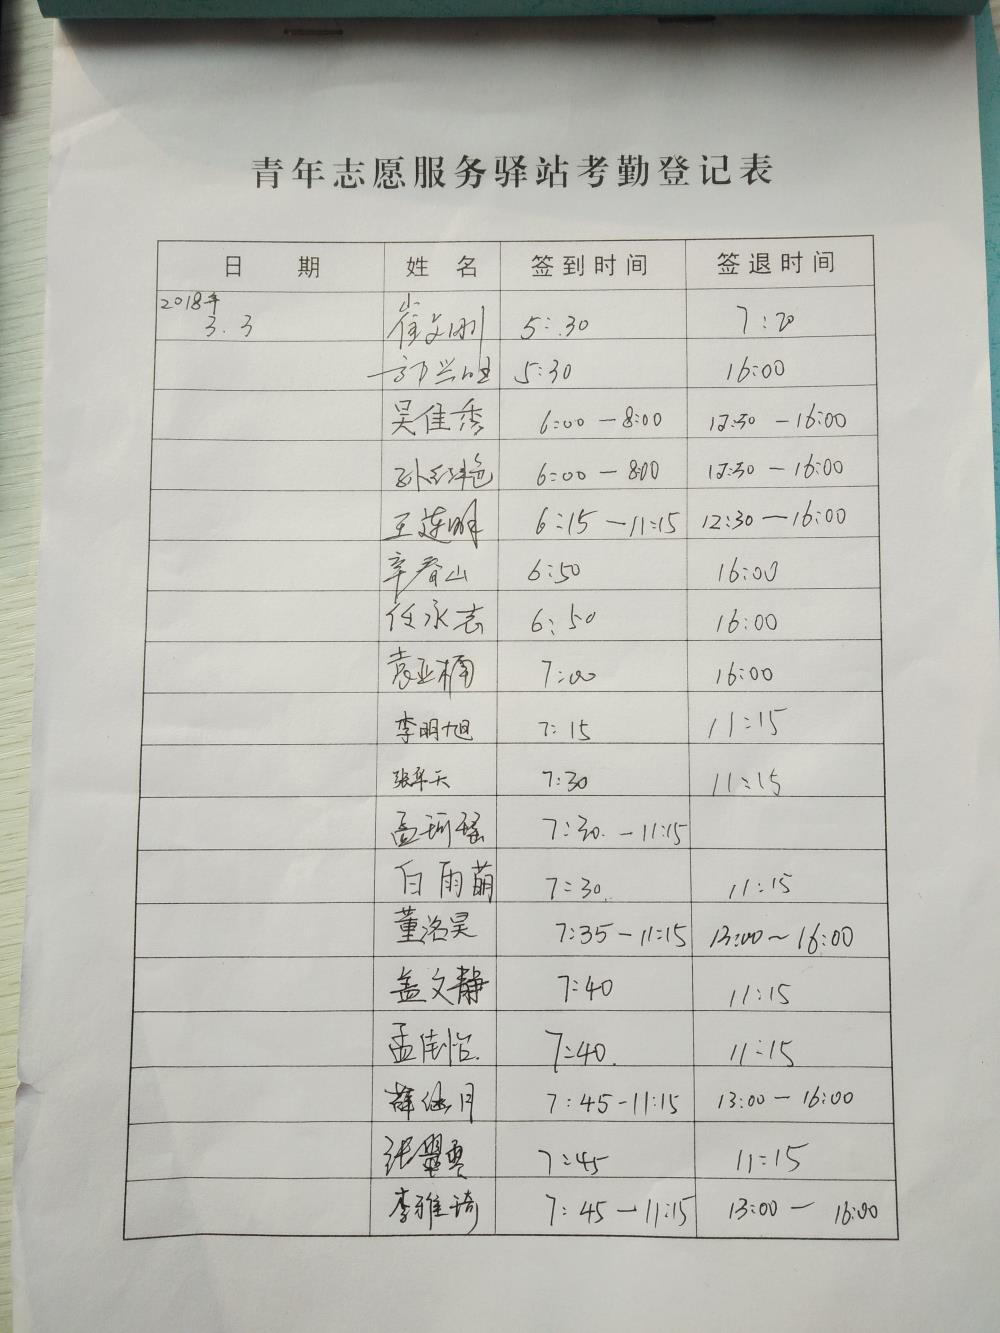 青年志愿服务驿站考勤登记表
日 期 姓 名 签到时间 签退时间
2018年
3.3 崔文刚 5:30 7:20
5:30 16:00
吴佳秀 6:00-8:00 12:30-16:00
孙红艳 6:00-8:00 12:30-16:00
王莲 6:15-11:15 12:30-16:00
辛春山 6:50 16:00
任永志 6:50 16:00
袁亚楠 7:00 16:00
李明旭 7:15 11:15
张华天 7:30 11:15
孟珂瑶 7:30-11:15
白雨萌 7:30 11:15
董洺昊 7:35-11:15 13:00~16:00
孟文静 7:40 11:15
孟佳怡 7:40 11:15
薛 月 7:45-11:15 13:00-16:00
张 7:45 11:15
李雅琦 7:45-11:15 13:00-16:00